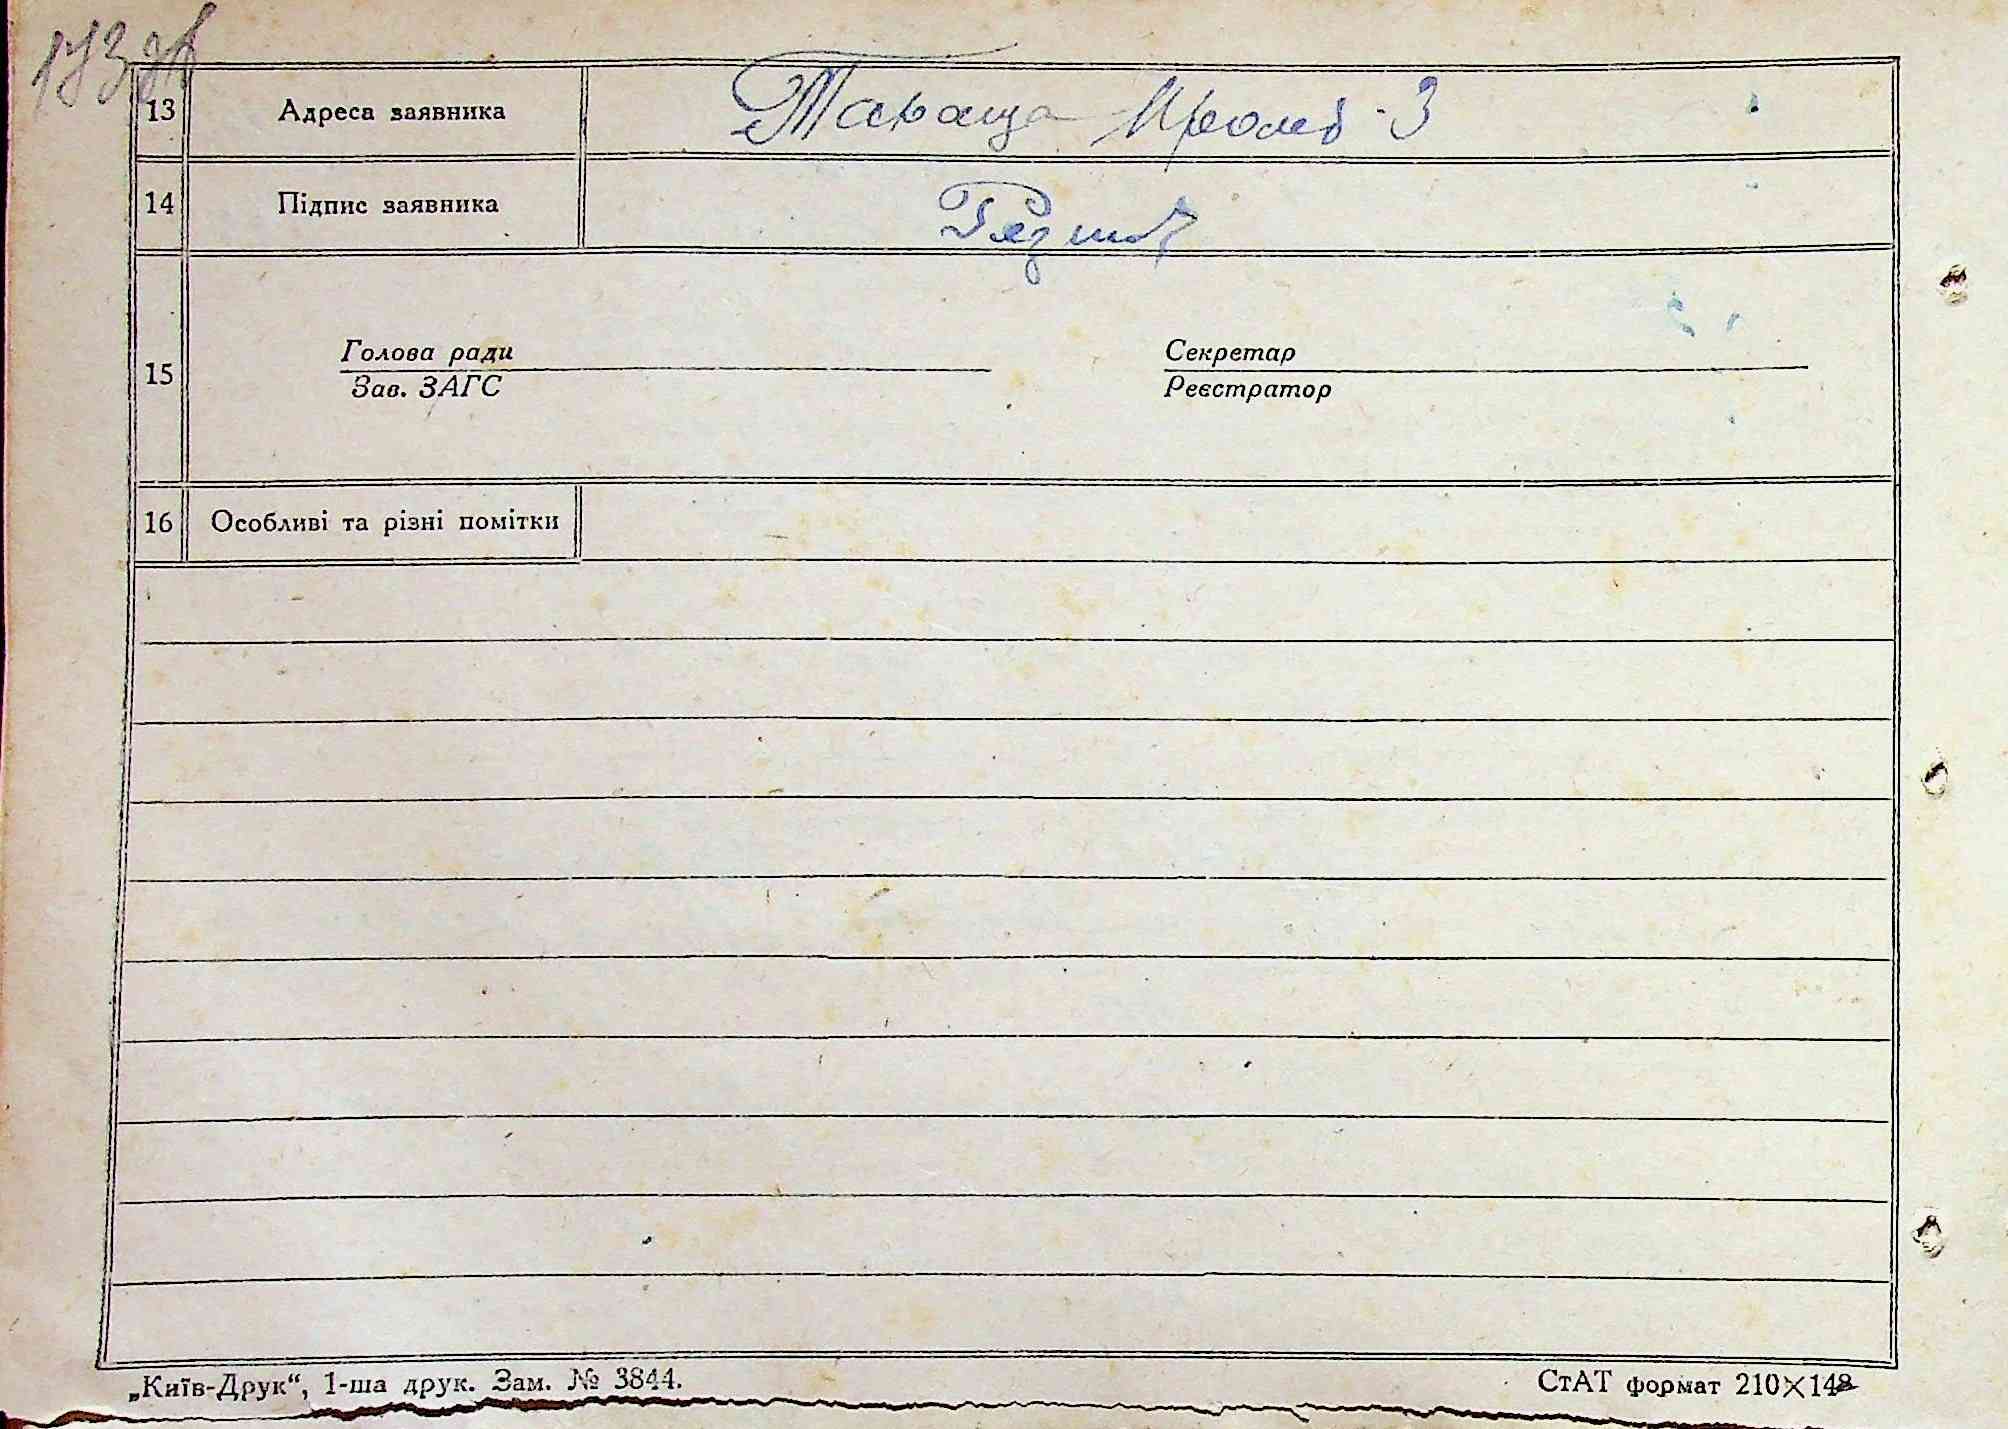 173 зв
13 Адреса заявника Тараща Пролет 3
14 Підпис заявника
15 Голова ради Секретар
Зав. ЗАГС Реєстратор
16 Особливі та різні помітки
„Київ-Друк“, 1-ша друк. Зам. № 3844. СтАТ формат 210×148